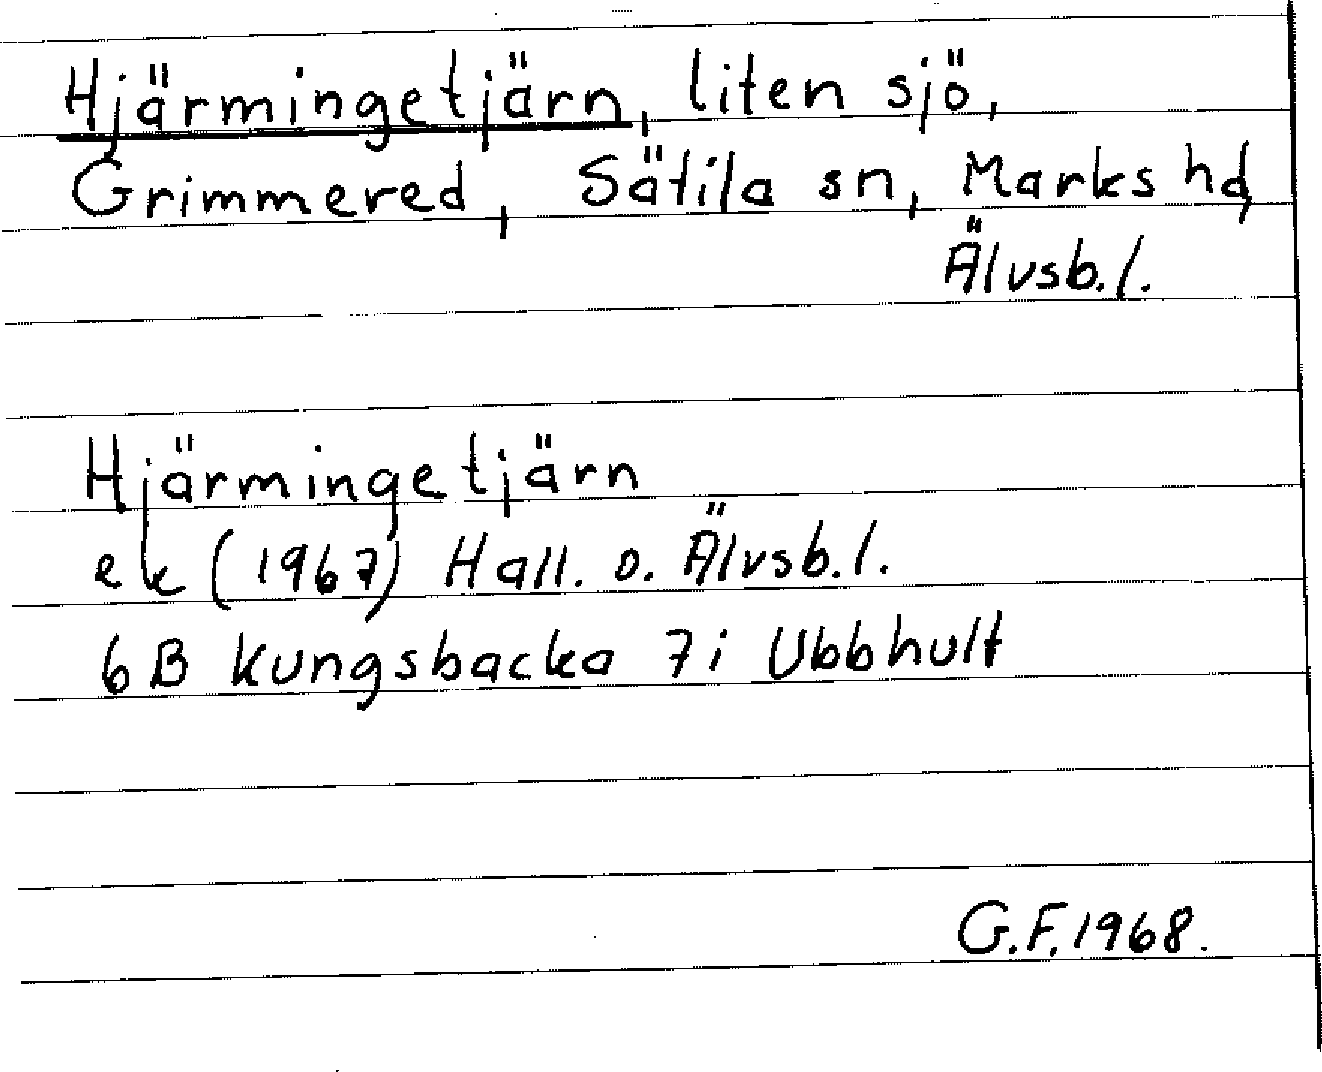 Hjärmingetjärn, liten sjö,
Grimmered, Sätila sn, Marks hd,
Älvsb.l.
Hjärmingetjärn
ek (1967) Hall. o. Älvsb.l.
6B Kungsbacka 7i Ubbhult
G.F. 1968.